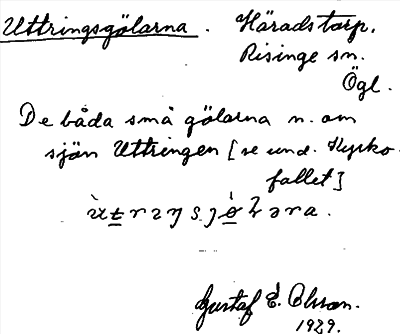 Uttringsgölarna. Häradstorp,
Risinge sn.
Ögl.
De båda små gölarna n. om
sjön Uttringen [se und. Kyrko-
fallet]
Gustaf E. Olsson.
1929.